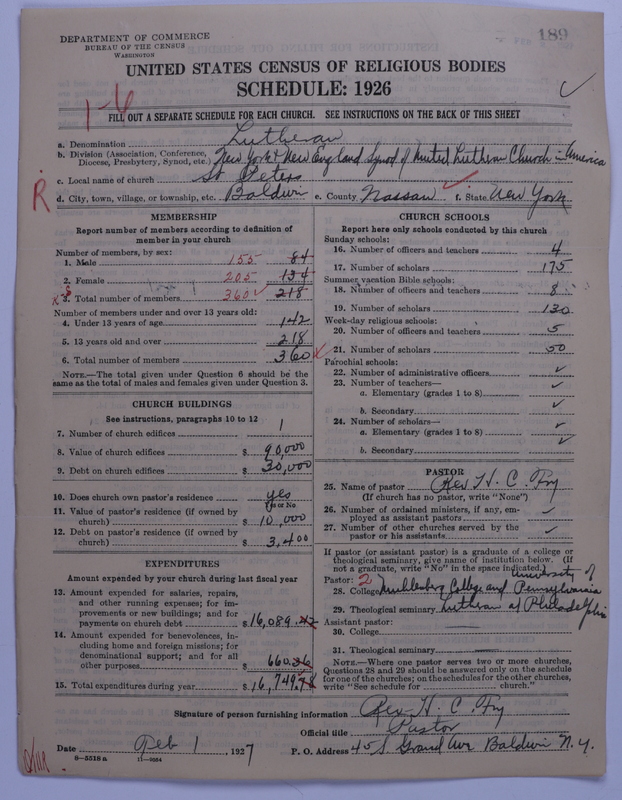 189
DEPARTMENT OF COMMERCE
BUREAU OF THE CENSUS
WASHINGTON
UNITED STATES CENSUS OF RELIGIOUS BODIES
SCHEDULE: 1926
1-6
FILL OUT A SEPARATE SCHEDULE FOR EACH CHURCH. SEE INSTRUCTIONS ON THE BACK OF THIS SHEET
a. Denomination Lutheran
b. Division (Association, Conference, Diocese, Presbytery, Synod, etc.) New York & New England Synod of United Lutheran Church in America
c. Local name of church St Peters
R
d. City, town, village, or township, etc. Baldwin e. County Nassau f. State New York
MEMBERSHIP
Report number of members according to definition of
member in your church
Number of members, by sex:
1. Male 155 84
2. Female 205 134
3. Total number of members 360 218
Number of members under and over 13 years old:
4. Under 13 years of age 142
5. 13 years old and over 218
6. Total number of members 360
NOTE.—The total given under Question 6 should be the
same as the total of males and females given under Question 3.
CHURCH BUILDINGS
See instructions, paragraphs 10 to 12
7. Number of church edifices 1
8. Value of church edifices $ 90,000
9. Debt on church edifices $ 30,000
10. Does church own pastor's residence yes
Yes or No
11. Value of pastor's residence (if owned by
church) $ 10,000
12. Debt on pastor's residence (if owned by
church) $ 3,400
EXPENDITURES
Amount expended by your church during last fiscal year
13. Amount expended for salaries, repairs,
and other running expenses; for im-
provements or new buildings; and for
payments on church debt $ 16,089
14. Amount expended for benevolences, in-
cluding home and foreign missions; for
denominational support; and for all
other purposes $ 660.36
15. Total expenditures during year $ 16,749.78
CHURCH SCHOOLS
Report here only schools conducted by this church
Sunday schools:
16. Number of officers and teachers 4
17. Number of scholars 175
Summer vacation Bible schools:
18. Number of officers and teachers 8
19. Number of scholars 130
Week-day religious schools:
20. Number of officers and teachers 5
21. Number of scholars 50
Parochial schools:
22. Number of administrative officers ✓
23. Number of teachers—
a. Elementary (grades 1 to 8) ✓
b. Secondary ✓
24. Number of scholars— ✓
a. Elementary (grades 1 to 8) ✓
b. Secondary
PASTOR
25. Name of pastor Rev H. C. Fry
(If church has no pastor, write "None")
26. Number of ordained ministers, if any, em-
ployed as assistant pastors ✓
27. Number of other churches served by the
pastor or his assistants ✓
If pastor (or assistant pastor) is a graduate of a college or
theological seminary, give name of institution below. (If
not a graduate, write "No" in the space indicated)
Pastor: 2 University of
28. College Muhlenberg College and Pennsylvania
29. Theological seminary Lutheran at Philadelphia
Assistant pastor:
30. College
31. Theological seminary
NOTE.—Where one pastor serves two or more churches,
Questions 28 and 29 should be answered only on the schedule
for one of the churches; on the schedules for the other churches,
write "See schedule for church."
Signature of person furnishing information Rev H. C. Fry
Official title Pastor
Date Feb 1, 1927 P. O. Address 45 S Grand Ave Baldwin N.Y.
8-5518a 11-9684